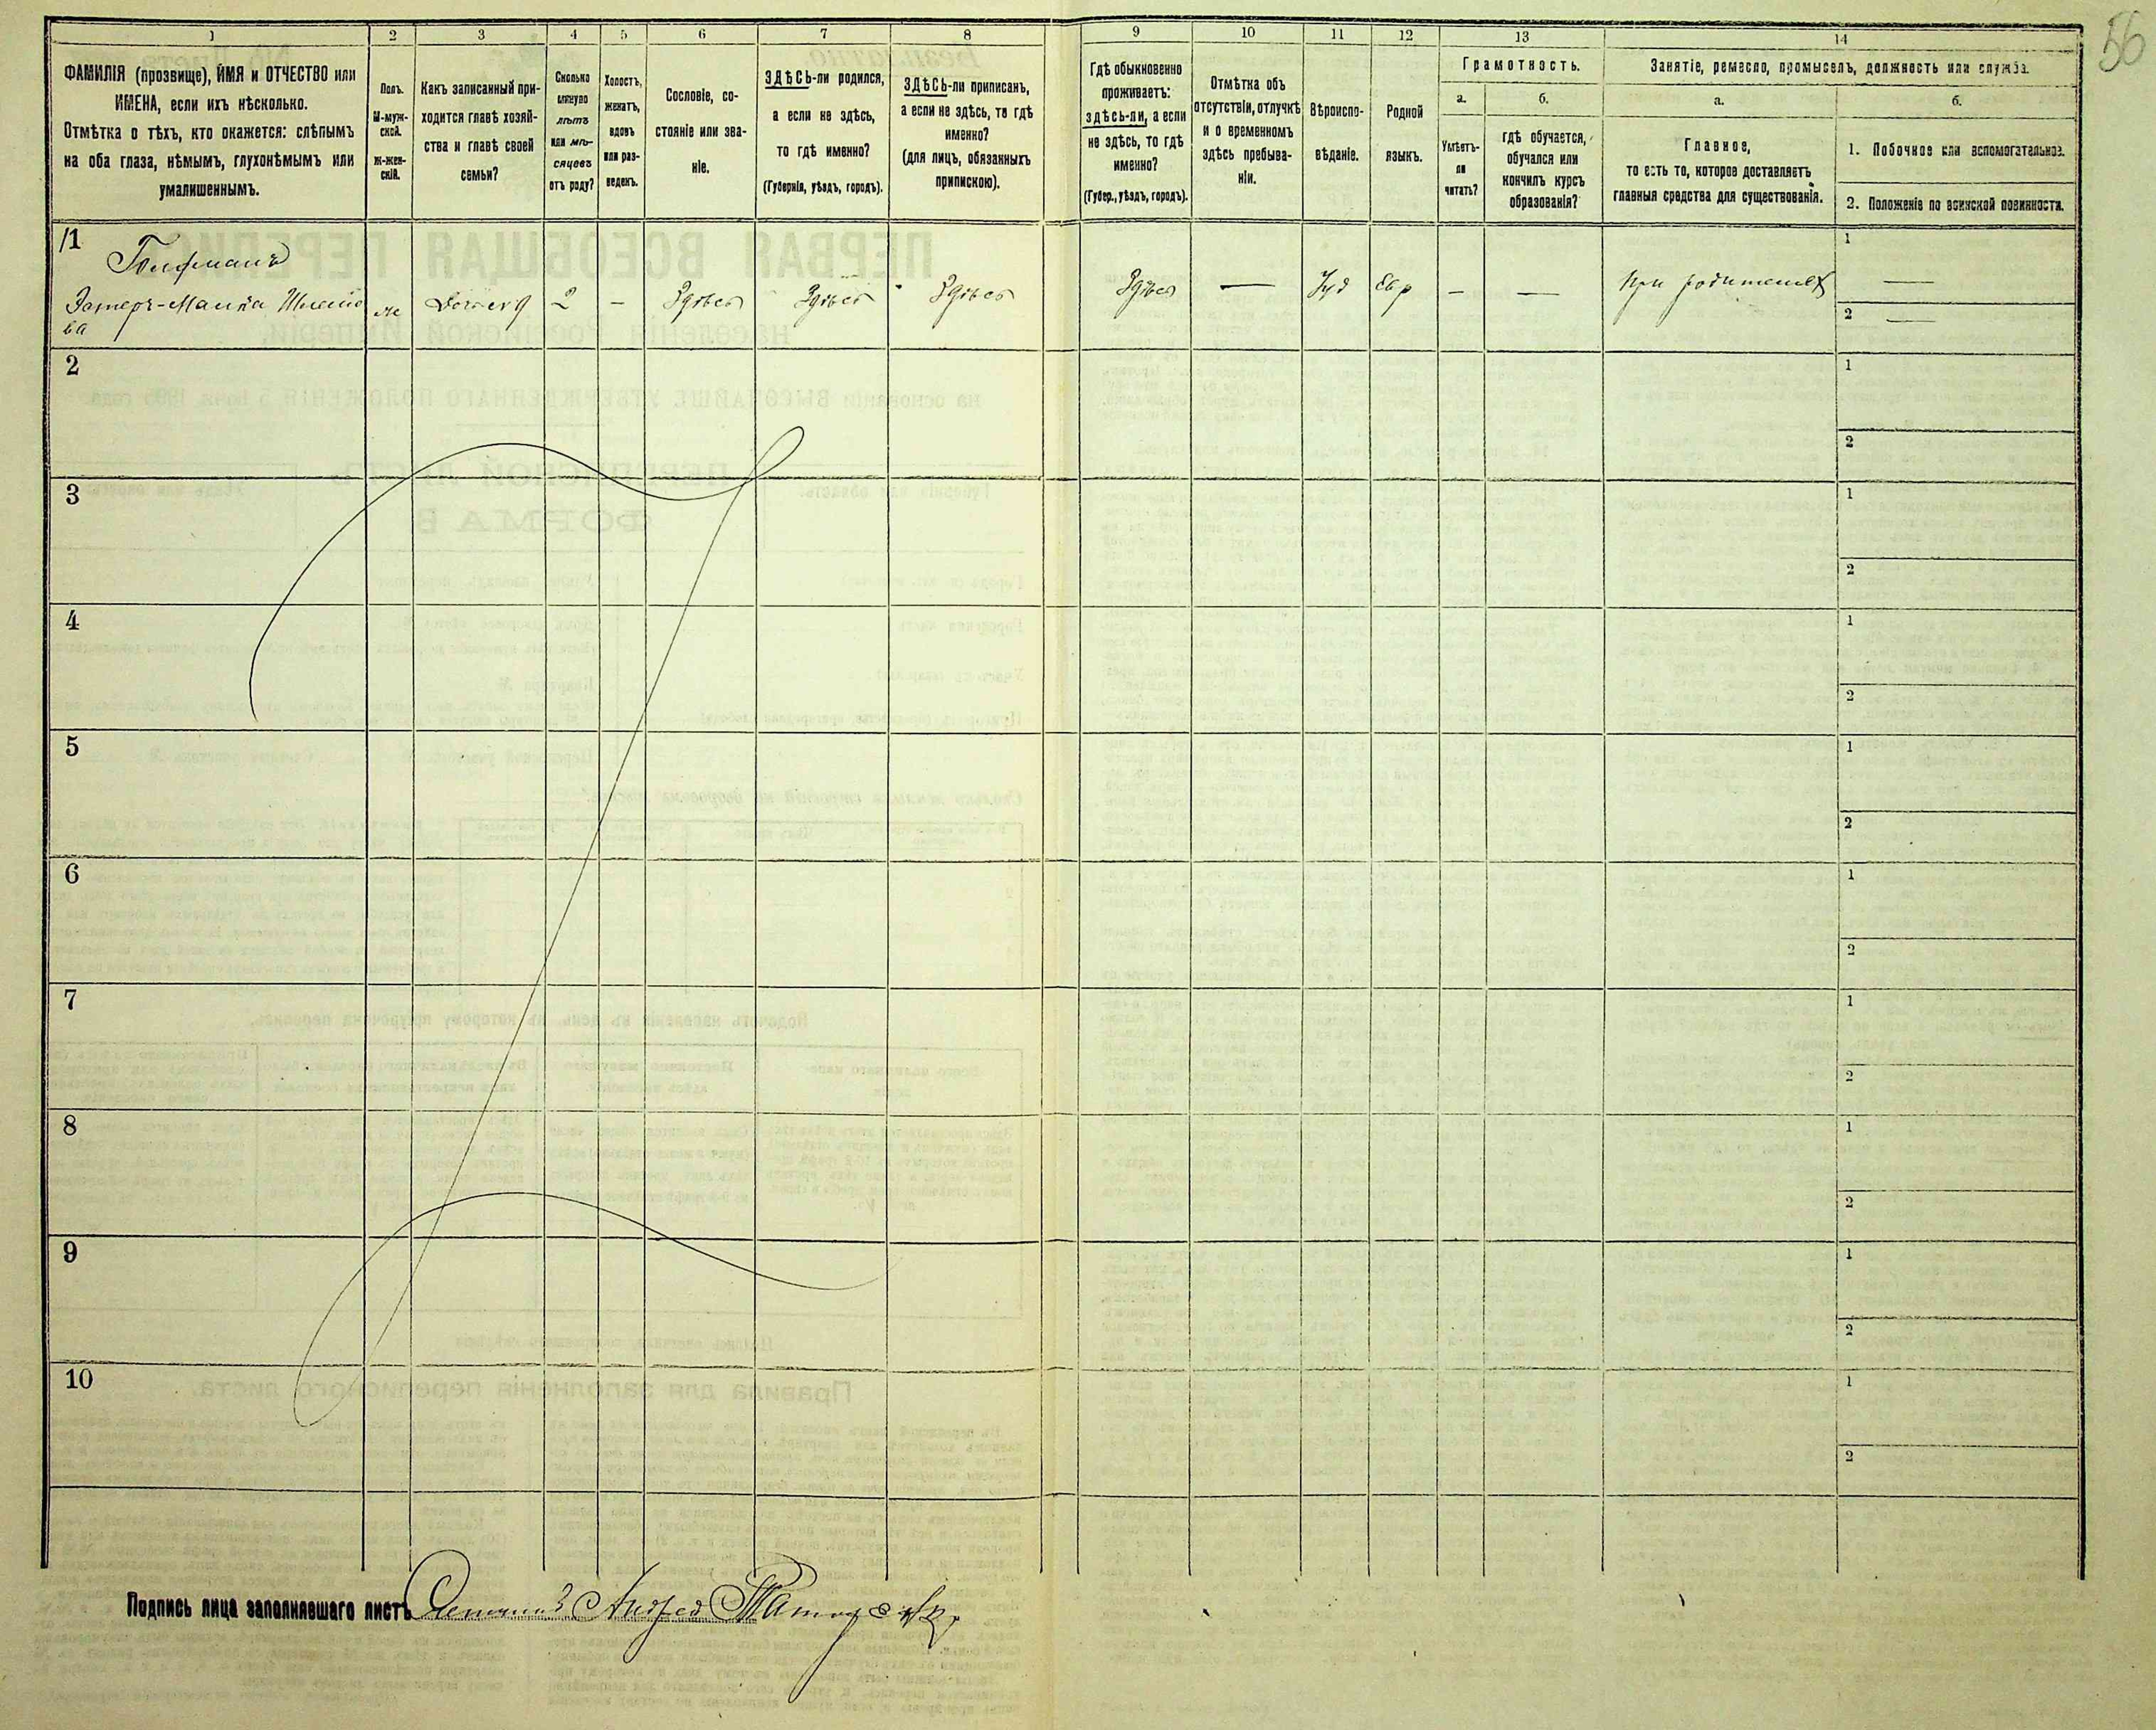 56
1 2 3 4 5 6 7 8 9 10 11 12 13 14
ФАМИЛІЯ (прозвище), ИМЯ и ОТЧЕСТВО или
ИМЕНА, если ихъ нѣсколько.
Отмѣтка о тѣхъ, кто окажется: слѣпымъ
на оба глаза, нѣмымъ, глухонѣмымъ или
умалишеннымъ.
Полъ.
М-муж-
ской.
Ж-жен-
скій.
Какъ записанный при-
ходится главѣ хозяй-
ства и главѣ своей
семьи?
Сколько
минуло
лѣтъ
или мѣ-
сяцевъ
отъ роду?
Холостъ,
женатъ,
вдовъ
или раз-
веденъ.
Сословіе, со-
стояніе или зва-
ніе.
ЗДѢСЬ-ли родился,
а если не здѣсь,
то гдѣ именно?
(Губернія, уѣздъ, городъ).
ЗДѢСЬ-ли приписанъ,
а если не здѣсь, то гдѣ
именно?
(для лицъ, обязанныхъ
припискою).
Гдѣ обыкновенно
проживаетъ:
здѣсь-ли, а если
не здѣсь, то гдѣ
именно?
(Губер., уѣздъ, городъ).
Отмѣтка объ
отсутствіи, отлучкѣ
и о временномъ
здѣсь пребыва-
ніи.
Вѣроиспо-
вѣданіе.
Родной
языкъ.
Грамотность.
а.
Умѣетъ-
ли
читать?
б.
гдѣ обучается,
обучался или
кончилъ курсъ
образованія?
Занятіе, ремесло, промыселъ, должность или служба.
а.
Главное,
то есть то, которое доставляетъ
главныя средства для существованія.
б.
1. Побочное или вспомогательное.
2. Положеніе по воинской повинности.
1
Гофманъ
Эстеръ-Малка Шлемо
ва
ж
2
—
Здѣсь
Здѣсь
Здѣсь
Здѣсь
—
Іуд
Евр
—
—
При родителяхъ
1
—
2
—
2
1
2
3
1
2
4
1
2
5
1
2
6
1
2
7
1
2
8
1
2
9
1
2
10
1
2
Подпись лица заполнявшаго листъ Счетчикъ Андрей